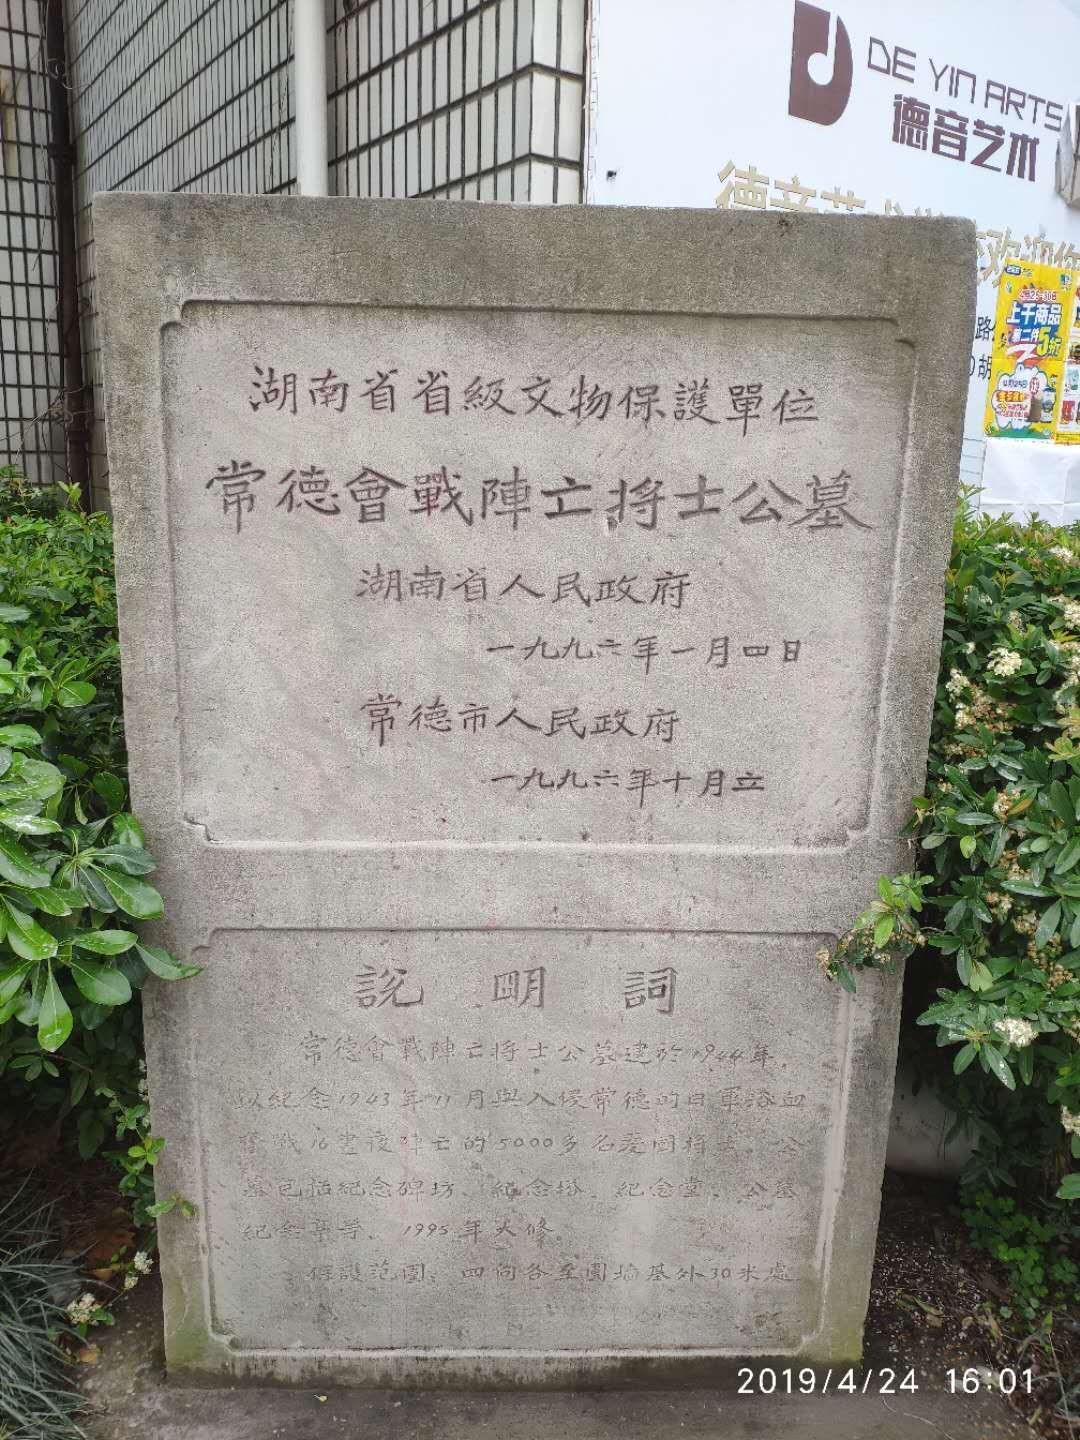 DE YIN ARTS
德音艺术
上千商品
第二件5折
湖南省省級文物保護單位
常德會戰陣亡将士公墓
湖南省人民政府
一九九六年一月四日
常德市人民政府
一九九六年十月立
說明詞
常德會戰陣亡将士公墓建於1944年，
以紀念1943年11月與入侵常德的日軍浴血
奮戰16晝夜陣亡的5000多名愛國将士。公
墓包括紀念碑坊、紀念塔、紀念堂、公墓
紀念亭等，1995年大修。
保護范圍：四向各至圍墙基外30米處
2019/4/24 16:01